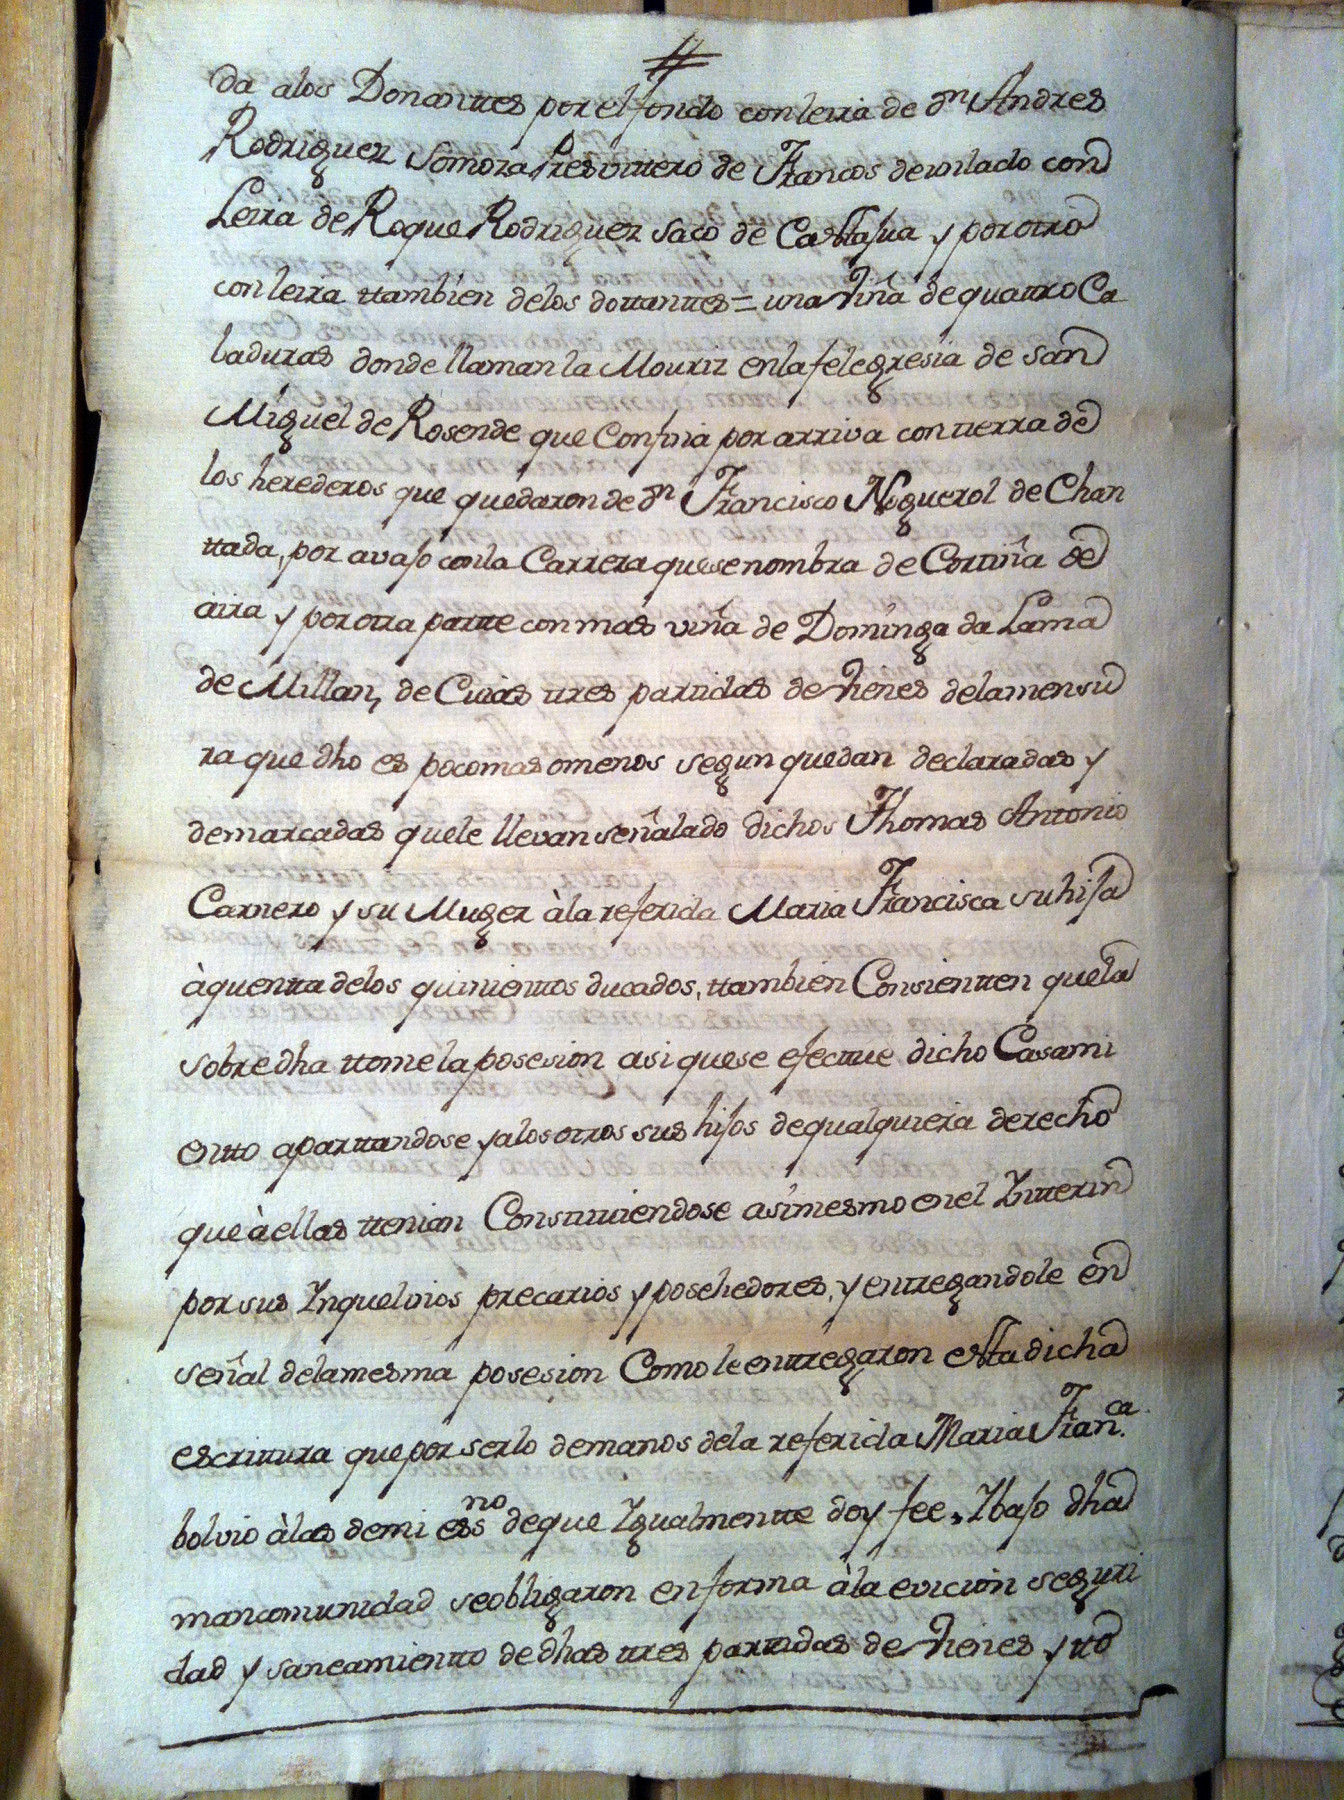 da alos Donanttes por el fondo con leira de dn Andres
Rodriguez Somoza Presvittero de Francos de un lado con
Leira de Roque Rodriguez saco de Castasua y por otro
con leira ttambien delos dottanttes = una viña de quattro Ca
laduras donde llaman la Mouriz en la felegresia de san
Miguel de Rosende que Confina por arriva con tierra de
los herederos que quedaron de dn Francisco Noguerol de Chan
ttada, por avaso con la Carrera que se nombra de Cortiña de
aira y por otra partte con mas viña de Dominga da Lama
de Millan, de Cuias tres partidas de vienes dela mensu
ra que dho es poco mas o menos segun quedan declaradas y
demarcadas que le llevan señalado dichos Thomas Antonio
Carnero y su Muger à la referida Maria Francisca su hisa
à quentta delos quinientos ducados, ttambien Consientten que la
sobre dha ttome la posesion asi que se efecttue dicho Casami
entto aparttandose y alos otros sus hisos de qualquiera derecho
que à ellas ttenian Constituiendose asimesmo en el Ynttering
por sus Ynquelinos precarios y posehedores, y entregandole en
señal dela mesma posesion Como le enttregaron esta dicha
escrittura que por serlo de manos dela referida Maria Fran.ca
bolvio à las de mi essno de que Ygualmentte doy fee, Y baso dha
mancomunidad se obligaron en forma à la evicion seguri
dad y saneamientto de dhas tres partidas de vienes y tto